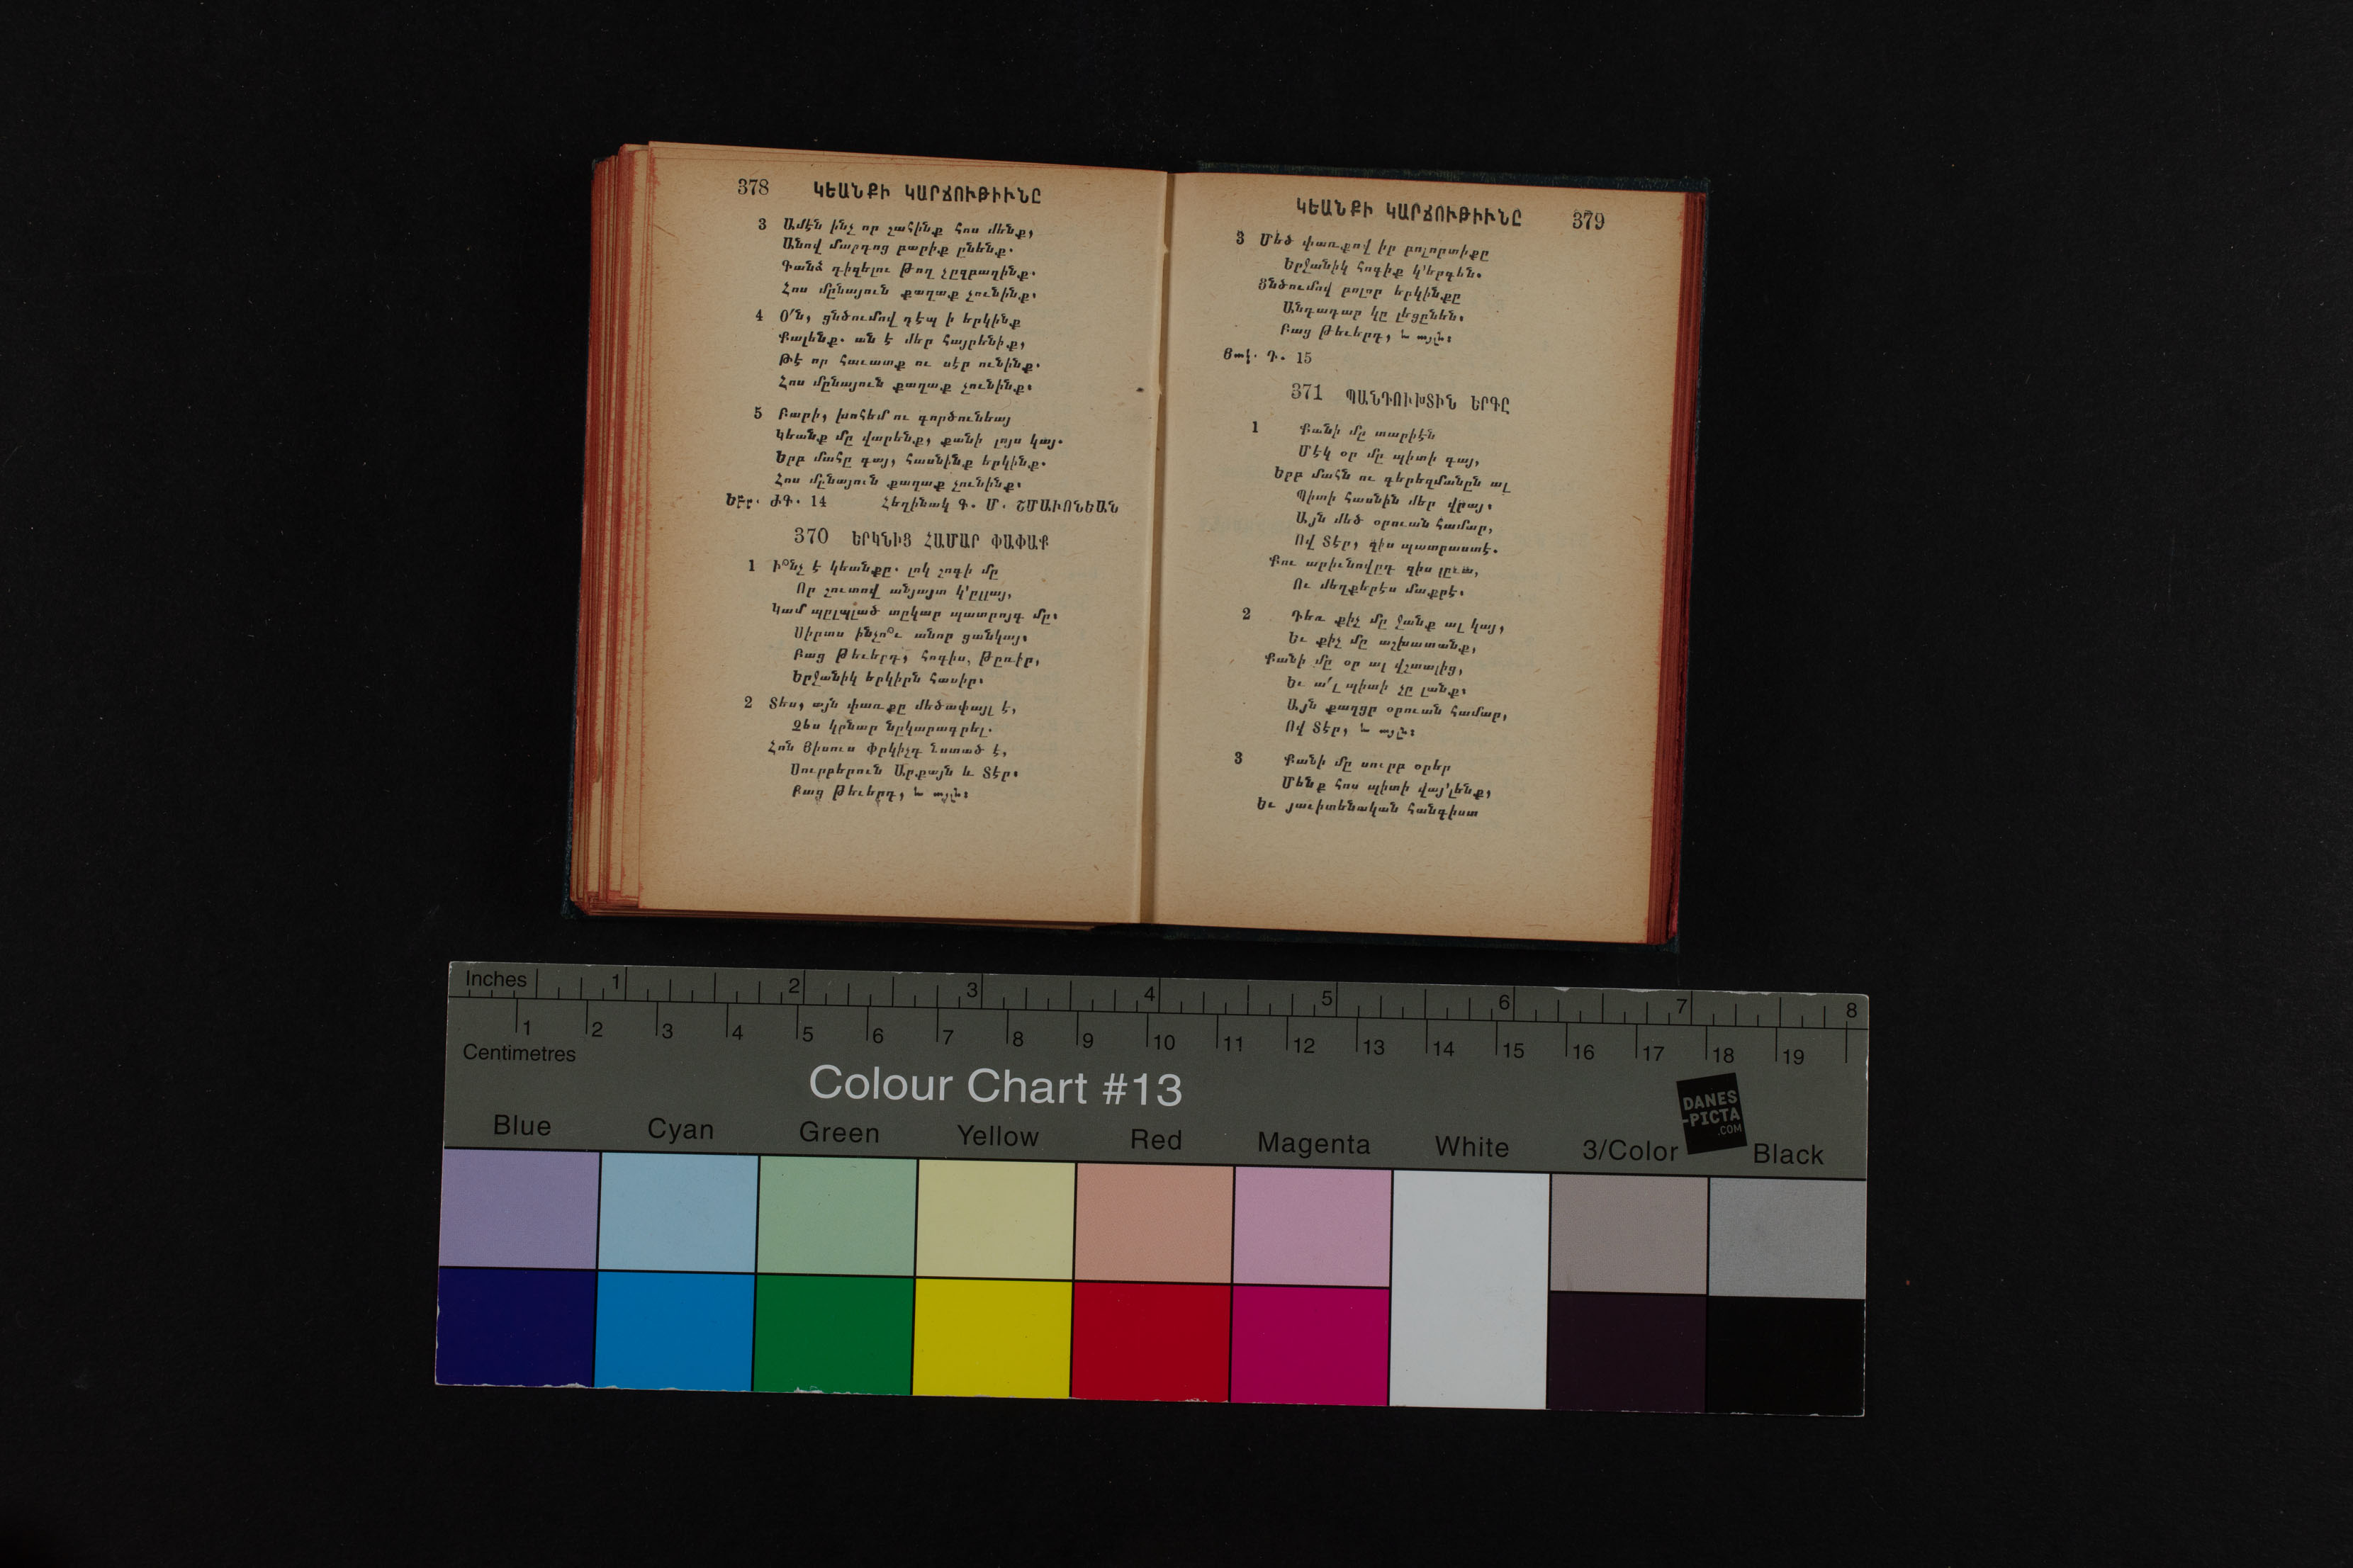 378 ԿԵԱՆՔԻ ԿԱՐՃՈՒԹԻՒՆԸ
3 Ամէն ինչ որ շահինք հոս մենք,
Անով մարդոց բարիք ընենք.
Գանձ դիզելու թող չըզբաղինք.
Հոս մընայուն քաղաք չունինք։
4 Օ՛ն, ցնծումով դէպ ի երկինք
Քալենք. ան է մեր հայրենիք,
Թէ որ հաւատք ու սէր ունինք.
Հոս մընայուն քաղաք չունինք։
5 Բարի, խոհեմ ու գործունեայ
Կեանք մը վարենք, քանի լոյս կայ.
Երբ մահը գայ, հասնինք երկինք.
Հոս մընայուն քաղաք չունինք։
Եբր. ԺԳ. 14 Հեղինակ Գ. Մ. ՇՄԱՒՈՆԵԱՆ
370 ԵՐԿՆԻՑ ՀԱՄԱՐ ՓԱՓԱՔ
1 Ի՞նչ է կեանքը. լոկ շոգի մը
Որ շուտով անյայտ կ՚ըլլայ,
Կամ պըլպլած տըկար պատրոյգ մը։
Սիրտս ինչո՞ւ անոր ցանկայ։
Բաց թեւերդ, հոգիս, թըռիր,
Երջանիկ երկիրն հասիր։
2 Տես, այն փառքը մեծափայլ է,
Չես կրնար նըկարագրել.
Հոն Յիսուս Փրկիչդ նստած է,
Սուրբերուն Արքայն և Տէր։
Բաց թեւերդ, և այլն։
ԿԵԱՆՔԻ ԿԱՐՃՈՒԹԻՒՆԸ 379
3 Մեծ փառքով իր բոլորտիքը
Երջանիկ հոգիք կ՚երգեն.
Ցնծումով բոլոր երկինքը
Անդադար կը լեցընեն։
Բաց թեւերդ, և այլն։
Յակ. Դ. 15
371 ՊԱՆԴՈՒԽՏԻՆ ԵՐԳԸ
1 Քանի մը տարիէն
Մէկ օր մը պիտի գայ,
Երբ մահն ու գերեզմանըն ալ
Պիտի հասնին մեր վրայ։
Այն մեծ օրուան համար,
Ով Տէր, զիս պատրաստէ.
Քու արիւնովըդ զիս լըւա,
Ու մեղքերէս մաքրէ։
2 Դեռ քիչ մը ջանք ալ կայ,
Եւ քիչ մը աշխատանք,
Քանի մը օր ալ վշտալից,
Եւ ա՛լ պիտի չը լանք։
Այն քաղցր օրուան համար,
Ով Տէր, և այլն։
3 Քանի մը սուրբ օրեր
Մենք հոս պիտի վայ՚լենք,
Եւ յաւիտենական հանգիստ
Inches 1 2 3 4 5 6 7 8
1 2 3 4 5 6 7 8 9 10 11 12 13 14 15 16 17 18 19
Centimetres
Colour Chart #13
DANES
-PICTA
.COM
Blue Cyan Green Yellow Red Magenta White 3/Color Black